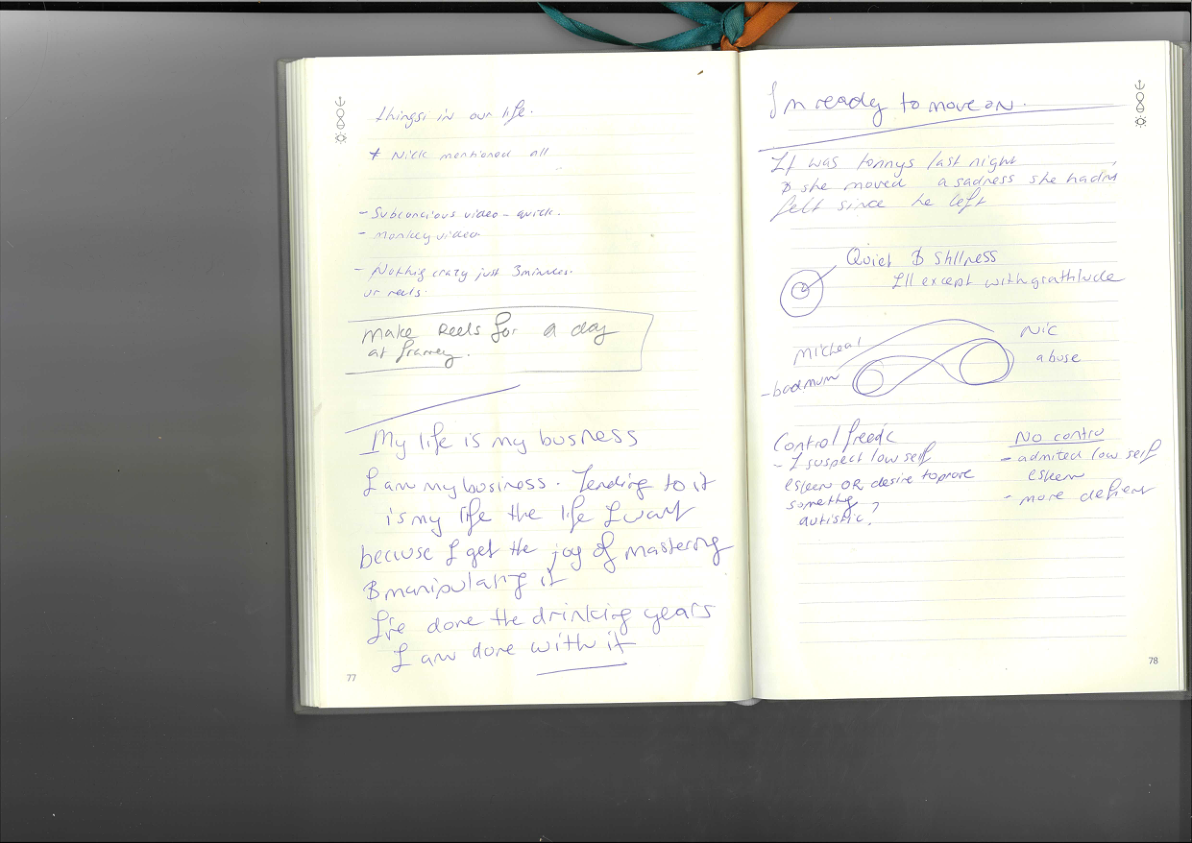 things in our life.
* Nick mentioned all
- Subconcious video - quick.
- Monkey video
- Nothig crazy just 3minutes.
ur reels.
make Reels for a day
at
My life is my busness
I am my business. Tending to it
is my life the life I want
because I get the joy of mastering
& manipulating it
I've done the drinking years
I am done with it
77
I'm ready to move on.
It was tonnys last night
& she moved a sadness she hadn't
felt since he left
Quiet & Stillness
I'll except with gratitude
Micheal
- bad mum
Nic
abuse
Control freak
- I suspect low self
esteem OR desire to prove
something
autistic?
No control
- admited low self
esteem
- more defient
78